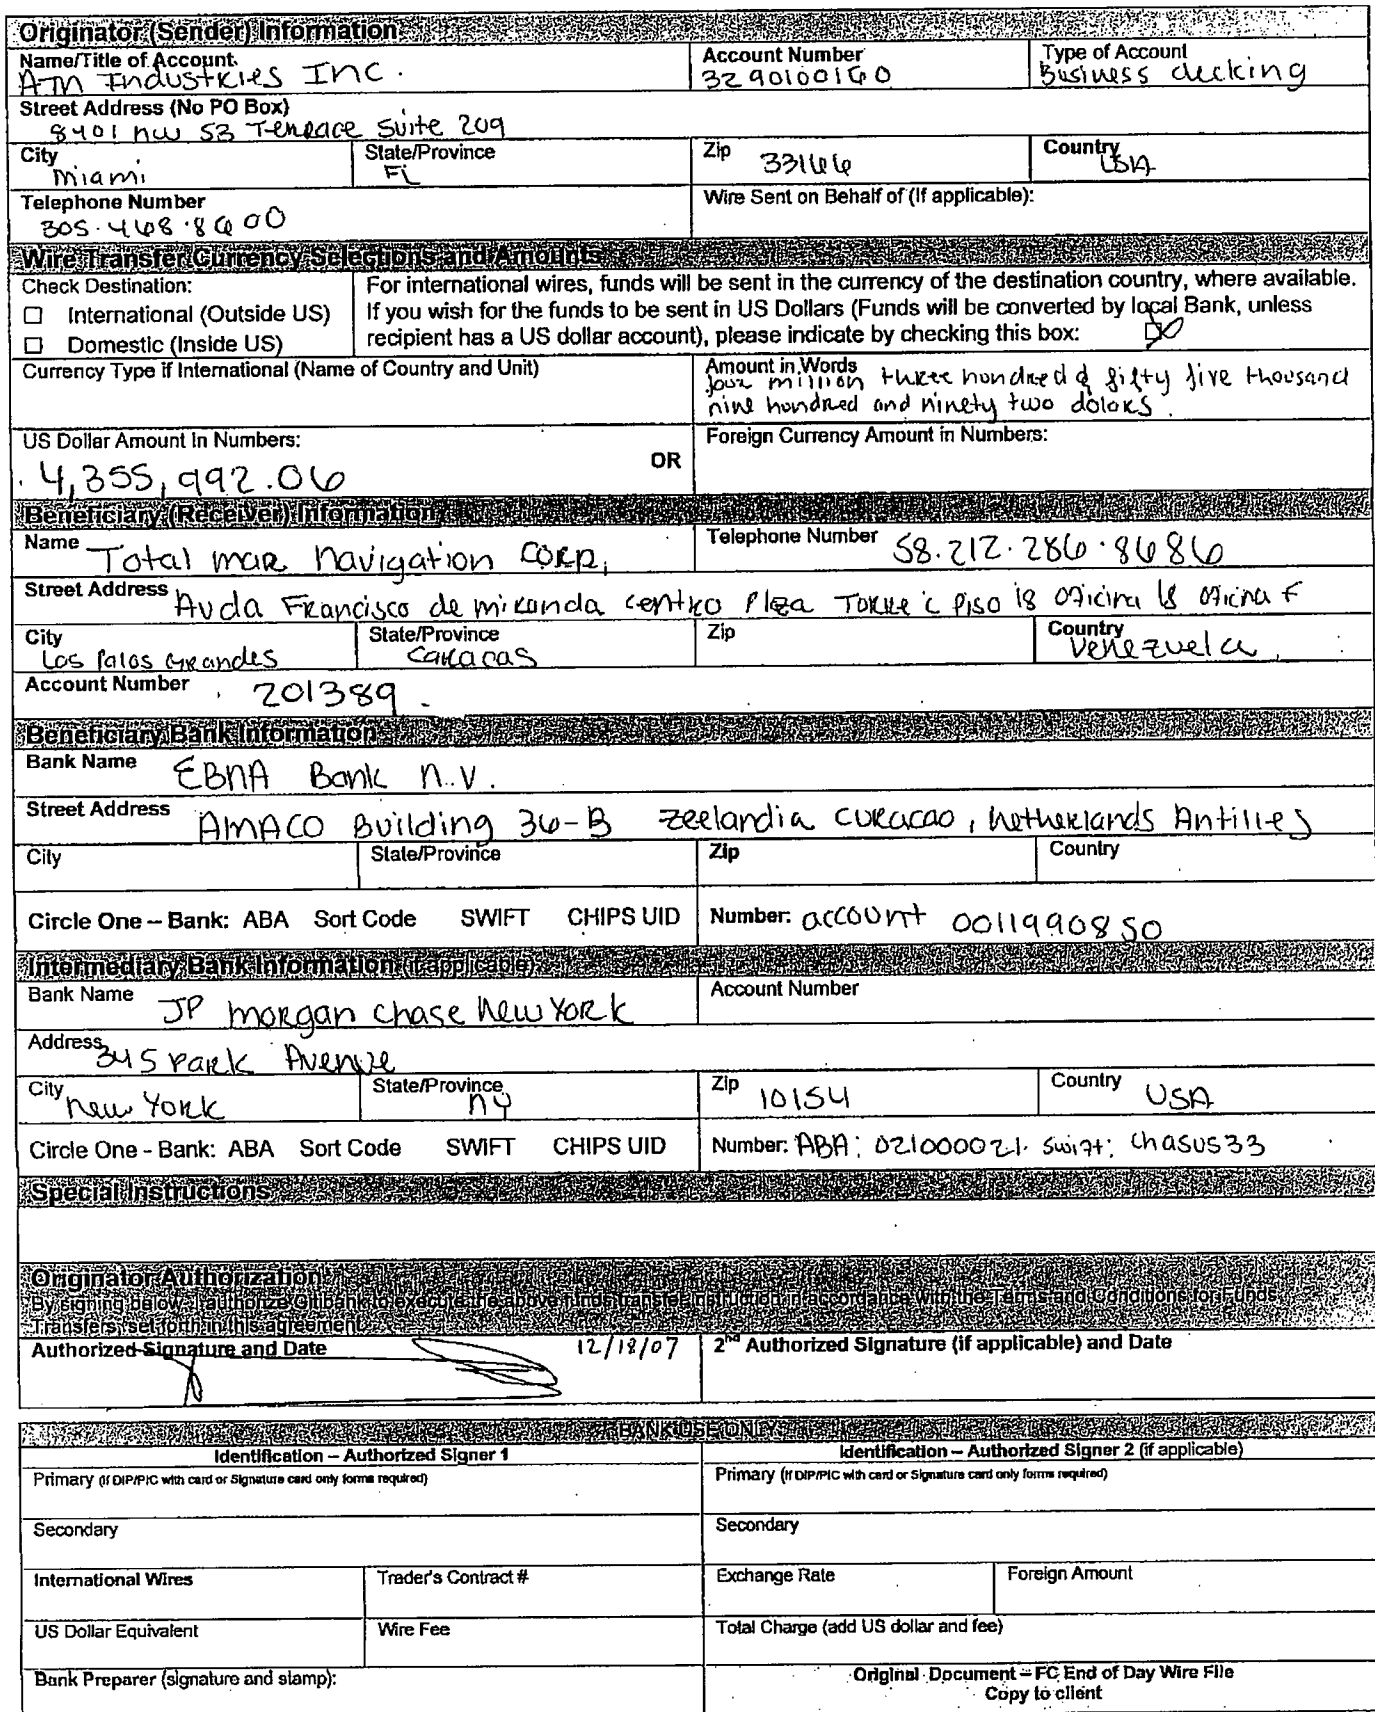 Originator (Sender) Information
Name/Title of Account
Account Number
Type of Account
ATM Industries Inc.
3290100160
Business checking
Street Address (No PO Box)
8401 nw 53 Terrace Suite 209
City
State/Province
Zip
Country
Miami
FL
33166
USA
Telephone Number
Wire Sent on Behalf of (If applicable):
305.468.8600
Wire Transfer Currency Selections and Amounts
Check Destination:
☐ International (Outside US)
☐ Domestic (Inside US)
For international wires, funds will be sent in the currency of the destination country, where available.
If you wish for the funds to be sent in US Dollars (Funds will be converted by local Bank, unless
recipient has a US dollar account), please indicate by checking this box: ☒
Currency Type if International (Name of Country and Unit)
Amount in Words
four million three hundred & fifty five thousand
nine hundred and ninety two dolars.
US Dollar Amount in Numbers:
OR
Foreign Currency Amount in Numbers:
4,355,992.06
Beneficiary (Receiver) Information
Name Total mar navigation CORP.
Telephone Number 58.212.286.8686
Street Address Avda Francisco de miranda centro Plza Torre c Piso 18 oficina 18 oficina F
City
State/Province
Zip
Country
Los Palos Grandes
Caracas
Venezuela
Account Number 201389.
Beneficiary Bank Information
Bank Name EBNA Bank n.v.
Street Address AMACO Building 36-B Zeelandia curacao, netherlands Antilles
City
State/Province
Zip
Country
Circle One – Bank: ABA Sort Code SWIFT CHIPS UID
Number: account 0011990850
Intermediary Bank Information (if applicable)
Bank Name JP morgan chase New York
Account Number
Address 345 Park Avenue
City
State/Province
Zip
Country
New York
NY
10154
USA
Circle One - Bank: ABA Sort Code SWIFT CHIPS UID
Number: ABA: 021000021. swift: chasus33
Special Instructions
Originator Authorization
By signing below, I authorize Citibank to execute the above funds transfer instruction in accordance with the Terms and Conditions for Funds
Transfers, set forth in this agreement.
Authorized Signature and Date 12/18/07
2nd Authorized Signature (if applicable) and Date
BANK USE ONLY
Identification – Authorized Signer 1
Identification – Authorized Signer 2 (if applicable)
Primary (If DIP/PIC with card or Signature card only forms required)
Primary (If DIP/PIC with card or Signature card only forms required)
Secondary
Secondary
International Wires
Trader's Contract #
Exchange Rate
Foreign Amount
US Dollar Equivalent
Wire Fee
Total Charge (add US dollar and fee)
Bank Preparer (signature and stamp):
Original Document – FC End of Day Wire File
Copy to client